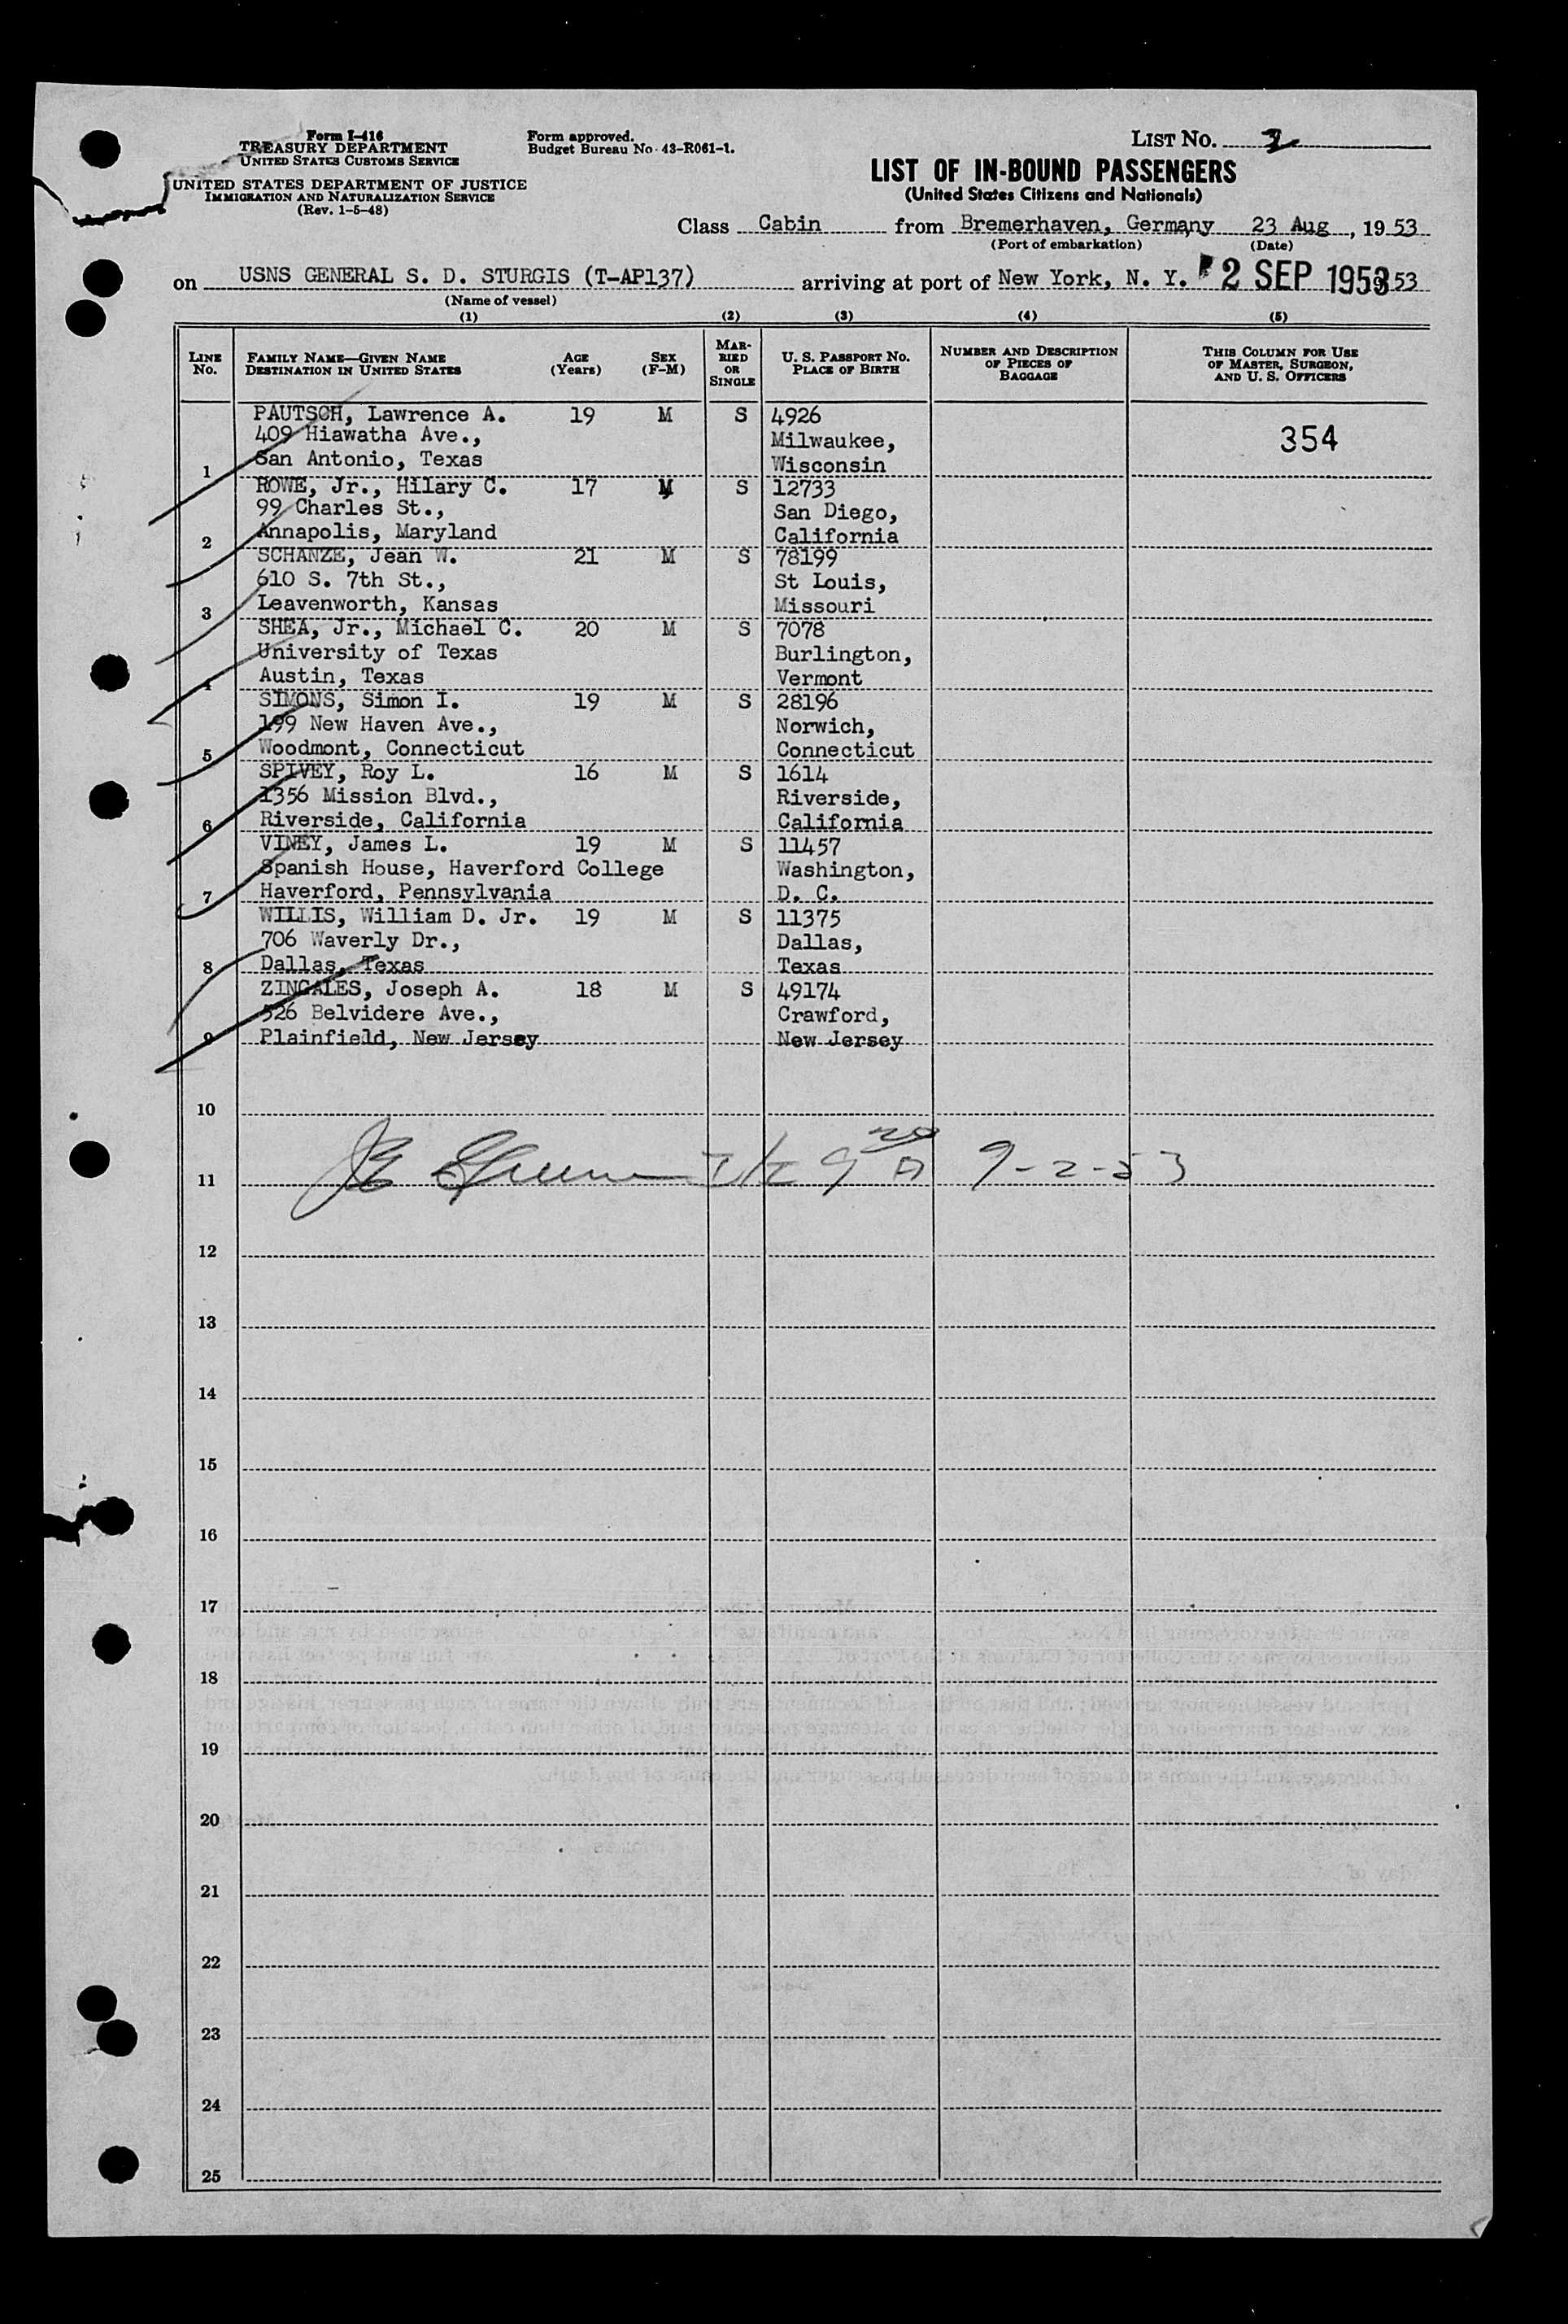 Form I-416
TREASURY DEPARTMENT
UNITED STATES CUSTOMS SERVICE
UNITED STATES DEPARTMENT OF JUSTICE
IMMIGRATION AND NATURALIZATION SERVICE
(Rev. 1-5-48)
Form approved.
Budget Bureau No. 43-R061-1.
LIST No. 2
LIST OF IN-BOUND PASSENGERS
(United States Citizens and Nationals)
Class Cabin from Bremerhaven, Germany 23 Aug, 1953
(Port of embarkation) (Date)
on USNS GENERAL S. D. STURGIS (T-AP137) arriving at port of New York, N. Y. 2 SEP 1953 53
(Name of vessel)
(1) (2) (3) (4) (5)
LINE No. FAMILY NAME—GIVEN NAME DESTINATION IN UNITED STATES AGE (Years) SEX (F-M) MARRIED OR SINGLE U. S. PASSPORT No. PLACE OF BIRTH NUMBER AND DESCRIPTION OF PIECES OF BAGGAGE THIS COLUMN FOR USE OF MASTER, SURGEON, AND U. S. OFFICERS
PAUTSCH, Lawrence A. 19 M S 4926
409 Hiawatha Ave., Milwaukee, 354
1 San Antonio, Texas Wisconsin
ROWE, Jr., Hilary C. 17 M S 12733
99 Charles St., San Diego,
2 Annapolis, Maryland California
SCHANZE, Jean W. 21 M S 78199
610 S. 7th St., St Louis,
3 Leavenworth, Kansas Missouri
SHEA, Jr., Michael C. 20 M S 7078
University of Texas Burlington,
4 Austin, Texas Vermont
SIMONS, Simon I. 19 M S 28196
199 New Haven Ave., Norwich,
5 Woodmont, Connecticut Connecticut
SPIVEY, Roy L. 16 M S 1614
1356 Mission Blvd., Riverside,
6 Riverside, California California
VINEY, James L. 19 M S 11457
Spanish House, Haverford College Washington,
7 Haverford, Pennsylvania D. C.
WILLIS, William D. Jr. 19 M S 11375
706 Waverly Dr., Dallas,
8 Dallas, Texas Texas
ZINGALES, Joseph A. 18 M S 49174
526 Belvidere Ave., Crawford,
9 Plainfield, New Jersey New Jersey
10
11 9-2-53
12
13
14
15
16
17
18
19
20
21
22
23
24
25